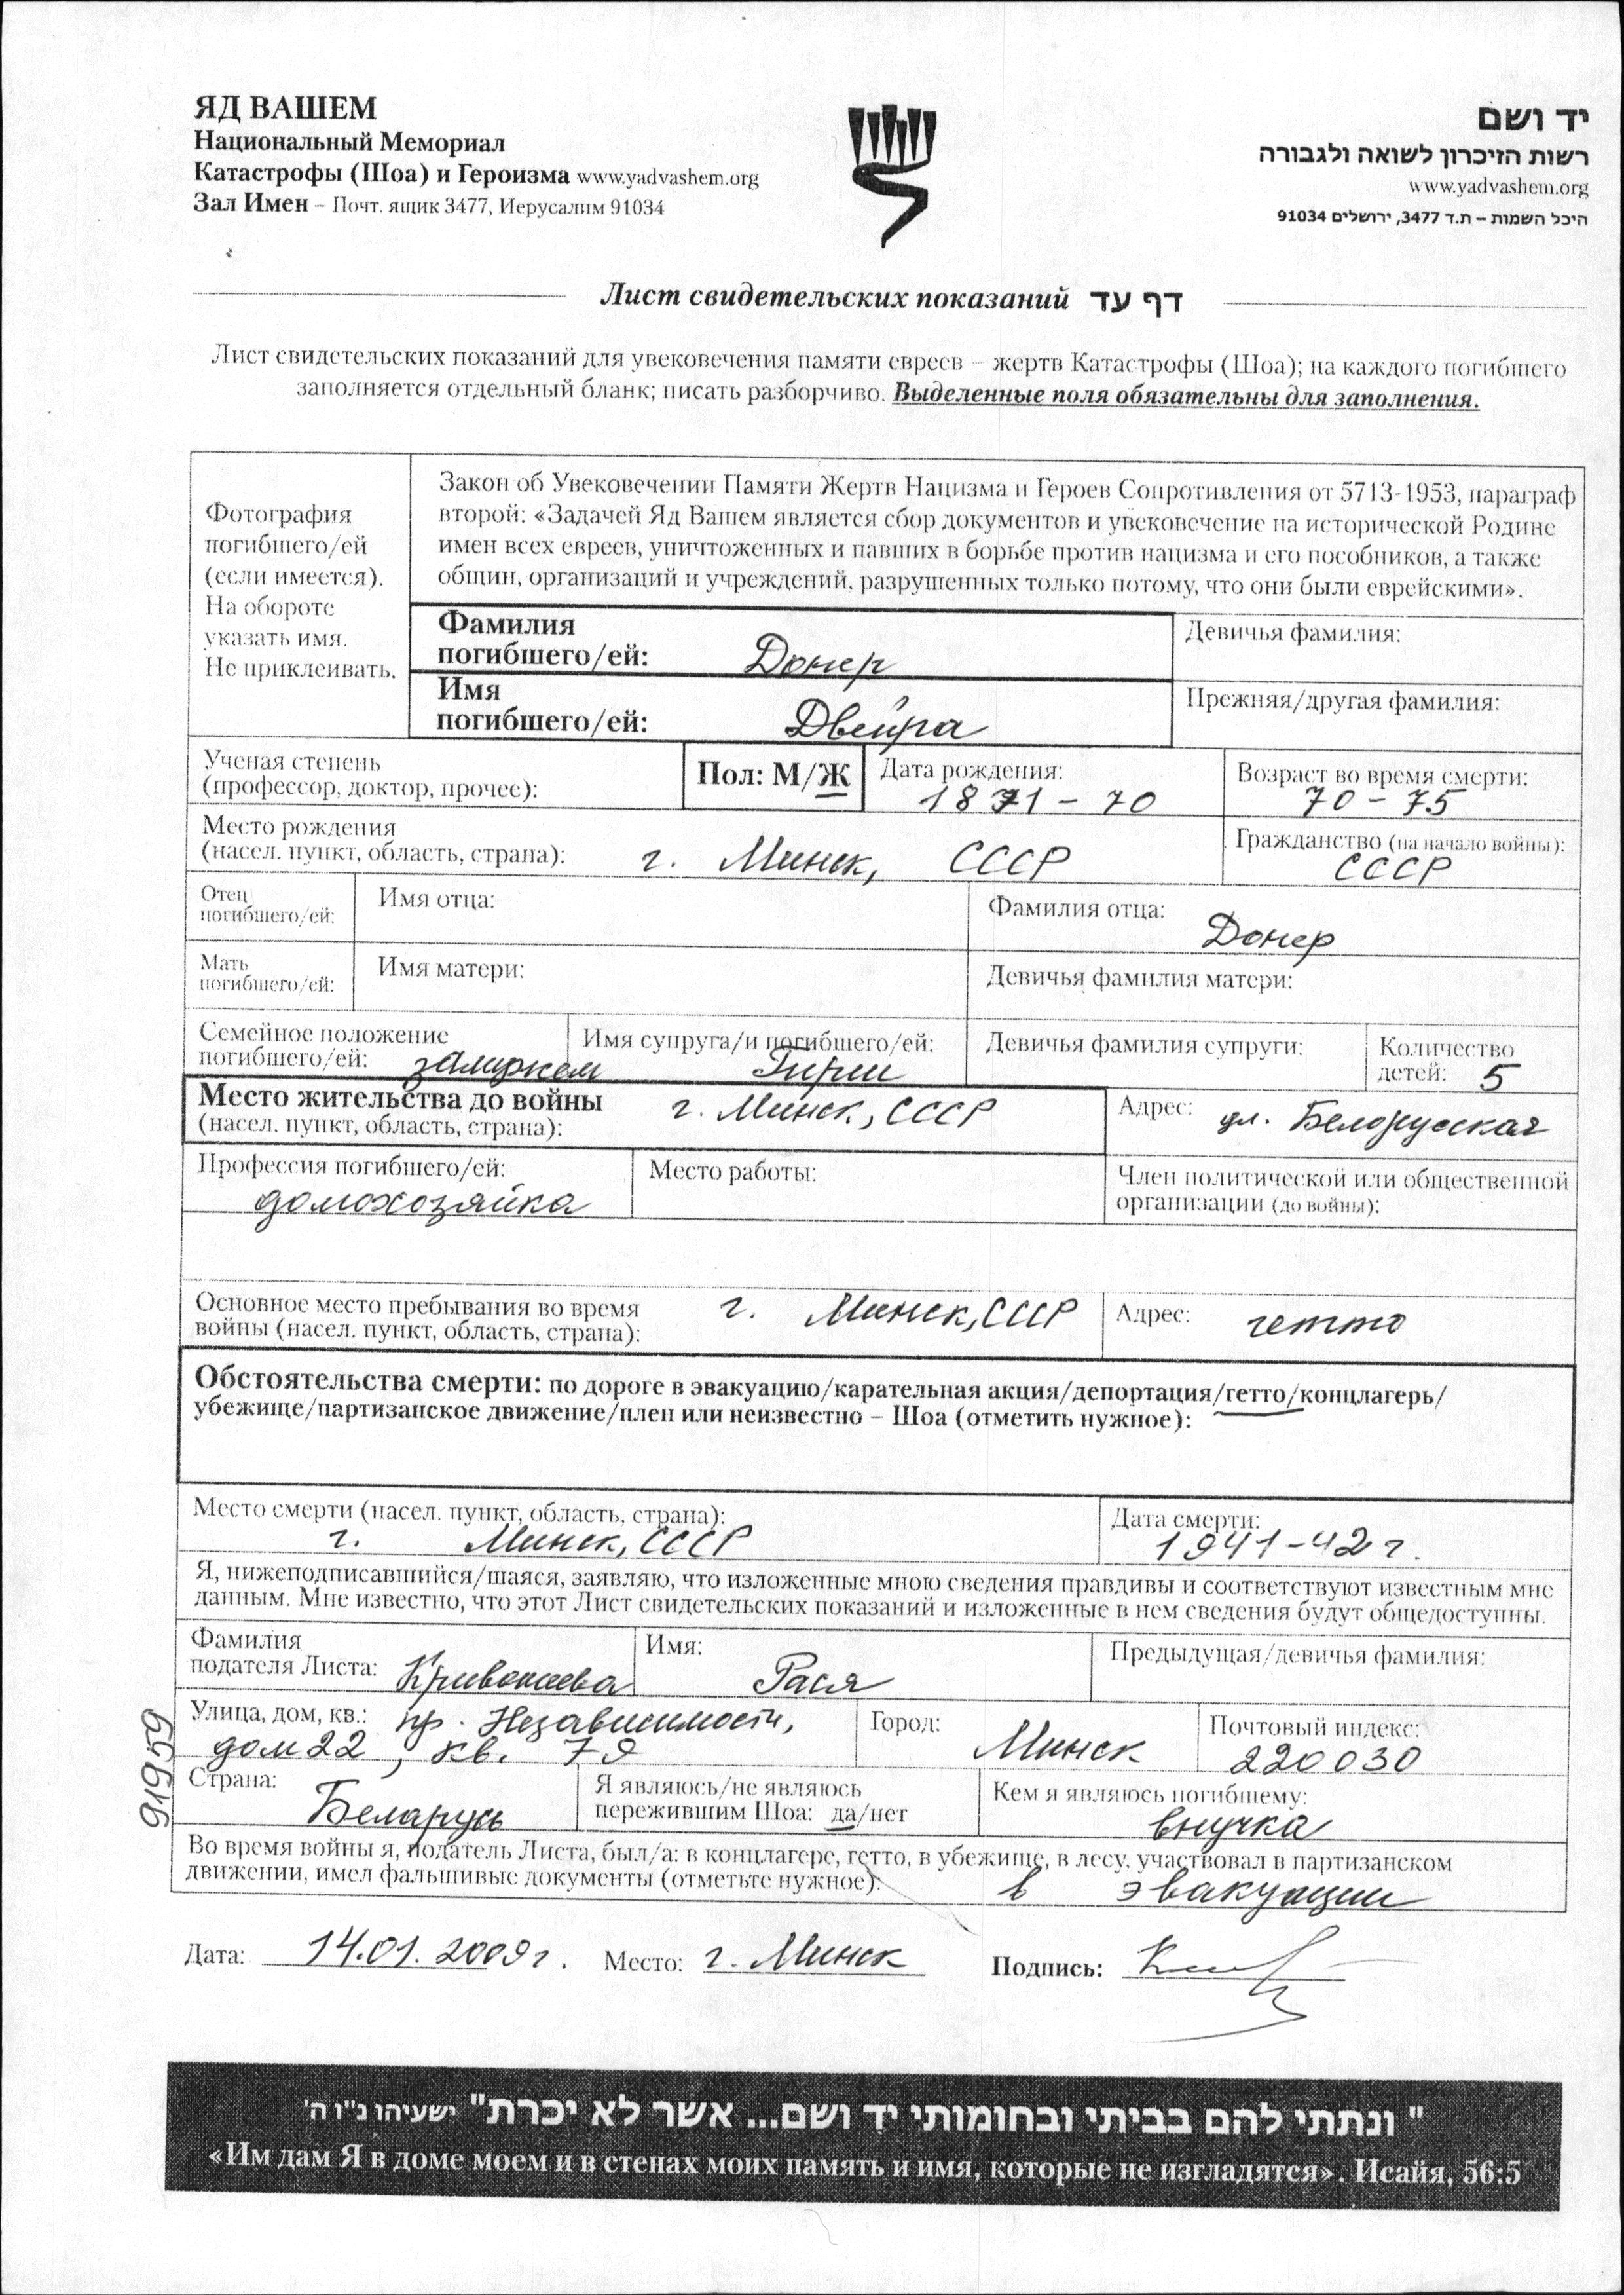 ЯД ВАШЕМ
Национальный Мемориал
Катастрофы (Шоа) и Героизма www.yadvashem.org
Зал Имен – Почт. ящик 3477, Иерусалим 91034
יד ושם
רשות הזיכרון לשואה ולגבורה
www.yadvashem.org
היכל השמות – ת.ד 3477, ירושלים 91034
Лист свидетельских показаний דף עד
Лист свидетельских показаний для увековечения памяти евреев – жертв Катастрофы (Шоа); на каждого погибшего
заполняется отдельный бланк; писать разборчиво. Выделенные поля обязательны для заполнения.
Фотография
погибшего/ей
(если имеется).
На обороте
указать имя.
Не приклеивать.
Закон об Увековечении Памяти Жертв Нацизма и Героев Сопротивления от 5713-1953, параграф
второй: «Задачей Яд Вашем является сбор документов и увековечение на исторической Родине
имен всех евреев, уничтоженных и павших в борьбе против нацизма и его пособников, а также
общин, организаций и учреждений, разрушенных только потому, что они были еврейскими».
Фамилия
погибшего/ей: Донер
Девичья фамилия:
Имя
погибшего/ей: Двейра
Прежняя/другая фамилия:
Ученая степень
(профессор, доктор, прочее):
Пол: М/Ж
Дата рождения:
1871-70
Возраст во время смерти:
70-75
Место рождения
(насел. пункт, область, страна): г. Минск, СССР
Гражданство (на начало войны):
СССР
Отец
погибшего/ей:
Имя отца:
Фамилия отца:
Донер
Мать
погибшего/ей:
Имя матери:
Девичья фамилия матери:
Семейное положение
погибшего/ей: замужем
Имя супруга/и погибшего/ей:
Гирш
Девичья фамилия супруги:
Количество
детей: 5
Место жительства до войны
(насел. пункт, область, страна): г. Минск, СССР
Адрес: ул. Белорусская
Профессия погибшего/ей:
домохозяйка
Место работы:
Член политической или общественной
организации (до войны):
Основное место пребывания во время
войны (насел. пункт, область, страна): г. Минск, СССР
Адрес: гетто
Обстоятельства смерти: по дороге в эвакуацию/карательная акция/депортация/гетто/концлагерь/
убежище/партизанское движение/плен или неизвестно – Шоа (отметить нужное):
Место смерти (насел. пункт, область, страна):
г. Минск, СССР
Дата смерти:
1941-42 г.
Я, нижеподписавшийся/шаяся, заявляю, что изложенные мною сведения правдивы и соответствуют известным мне
данным. Мне известно, что этот Лист свидетельских показаний и изложенные в нем сведения будут общедоступны.
Фамилия
подателя Листа:
Имя:
Рася
Предыдущая/девичья фамилия:
Улица, дом, кв.: пр. Независимости,
дом 22, кв. 79
Город:
Минск
Почтовый индекс:
220030
Страна:
Беларусь
Я являюсь/не являюсь
пережившим Шоа: да/нет
Кем я являюсь погибшему:
внучка
Во время войны я, податель Листа, был/а: в концлагере, гетто, в убежище, в лесу, участвовал в партизанском
движении, имел фальшивые документы (отметьте нужное): в эвакуации
91959
Дата: 14.01.2009г. Место: г. Минск Подпись:
" ונתתי להם בביתי ובחומותי יד ושם... אשר לא יכרת" ישעיהו נ"ו ה'
«Им дам Я в доме моем и в стенах моих память и имя, которые не изгладятся». Исайя, 56:5